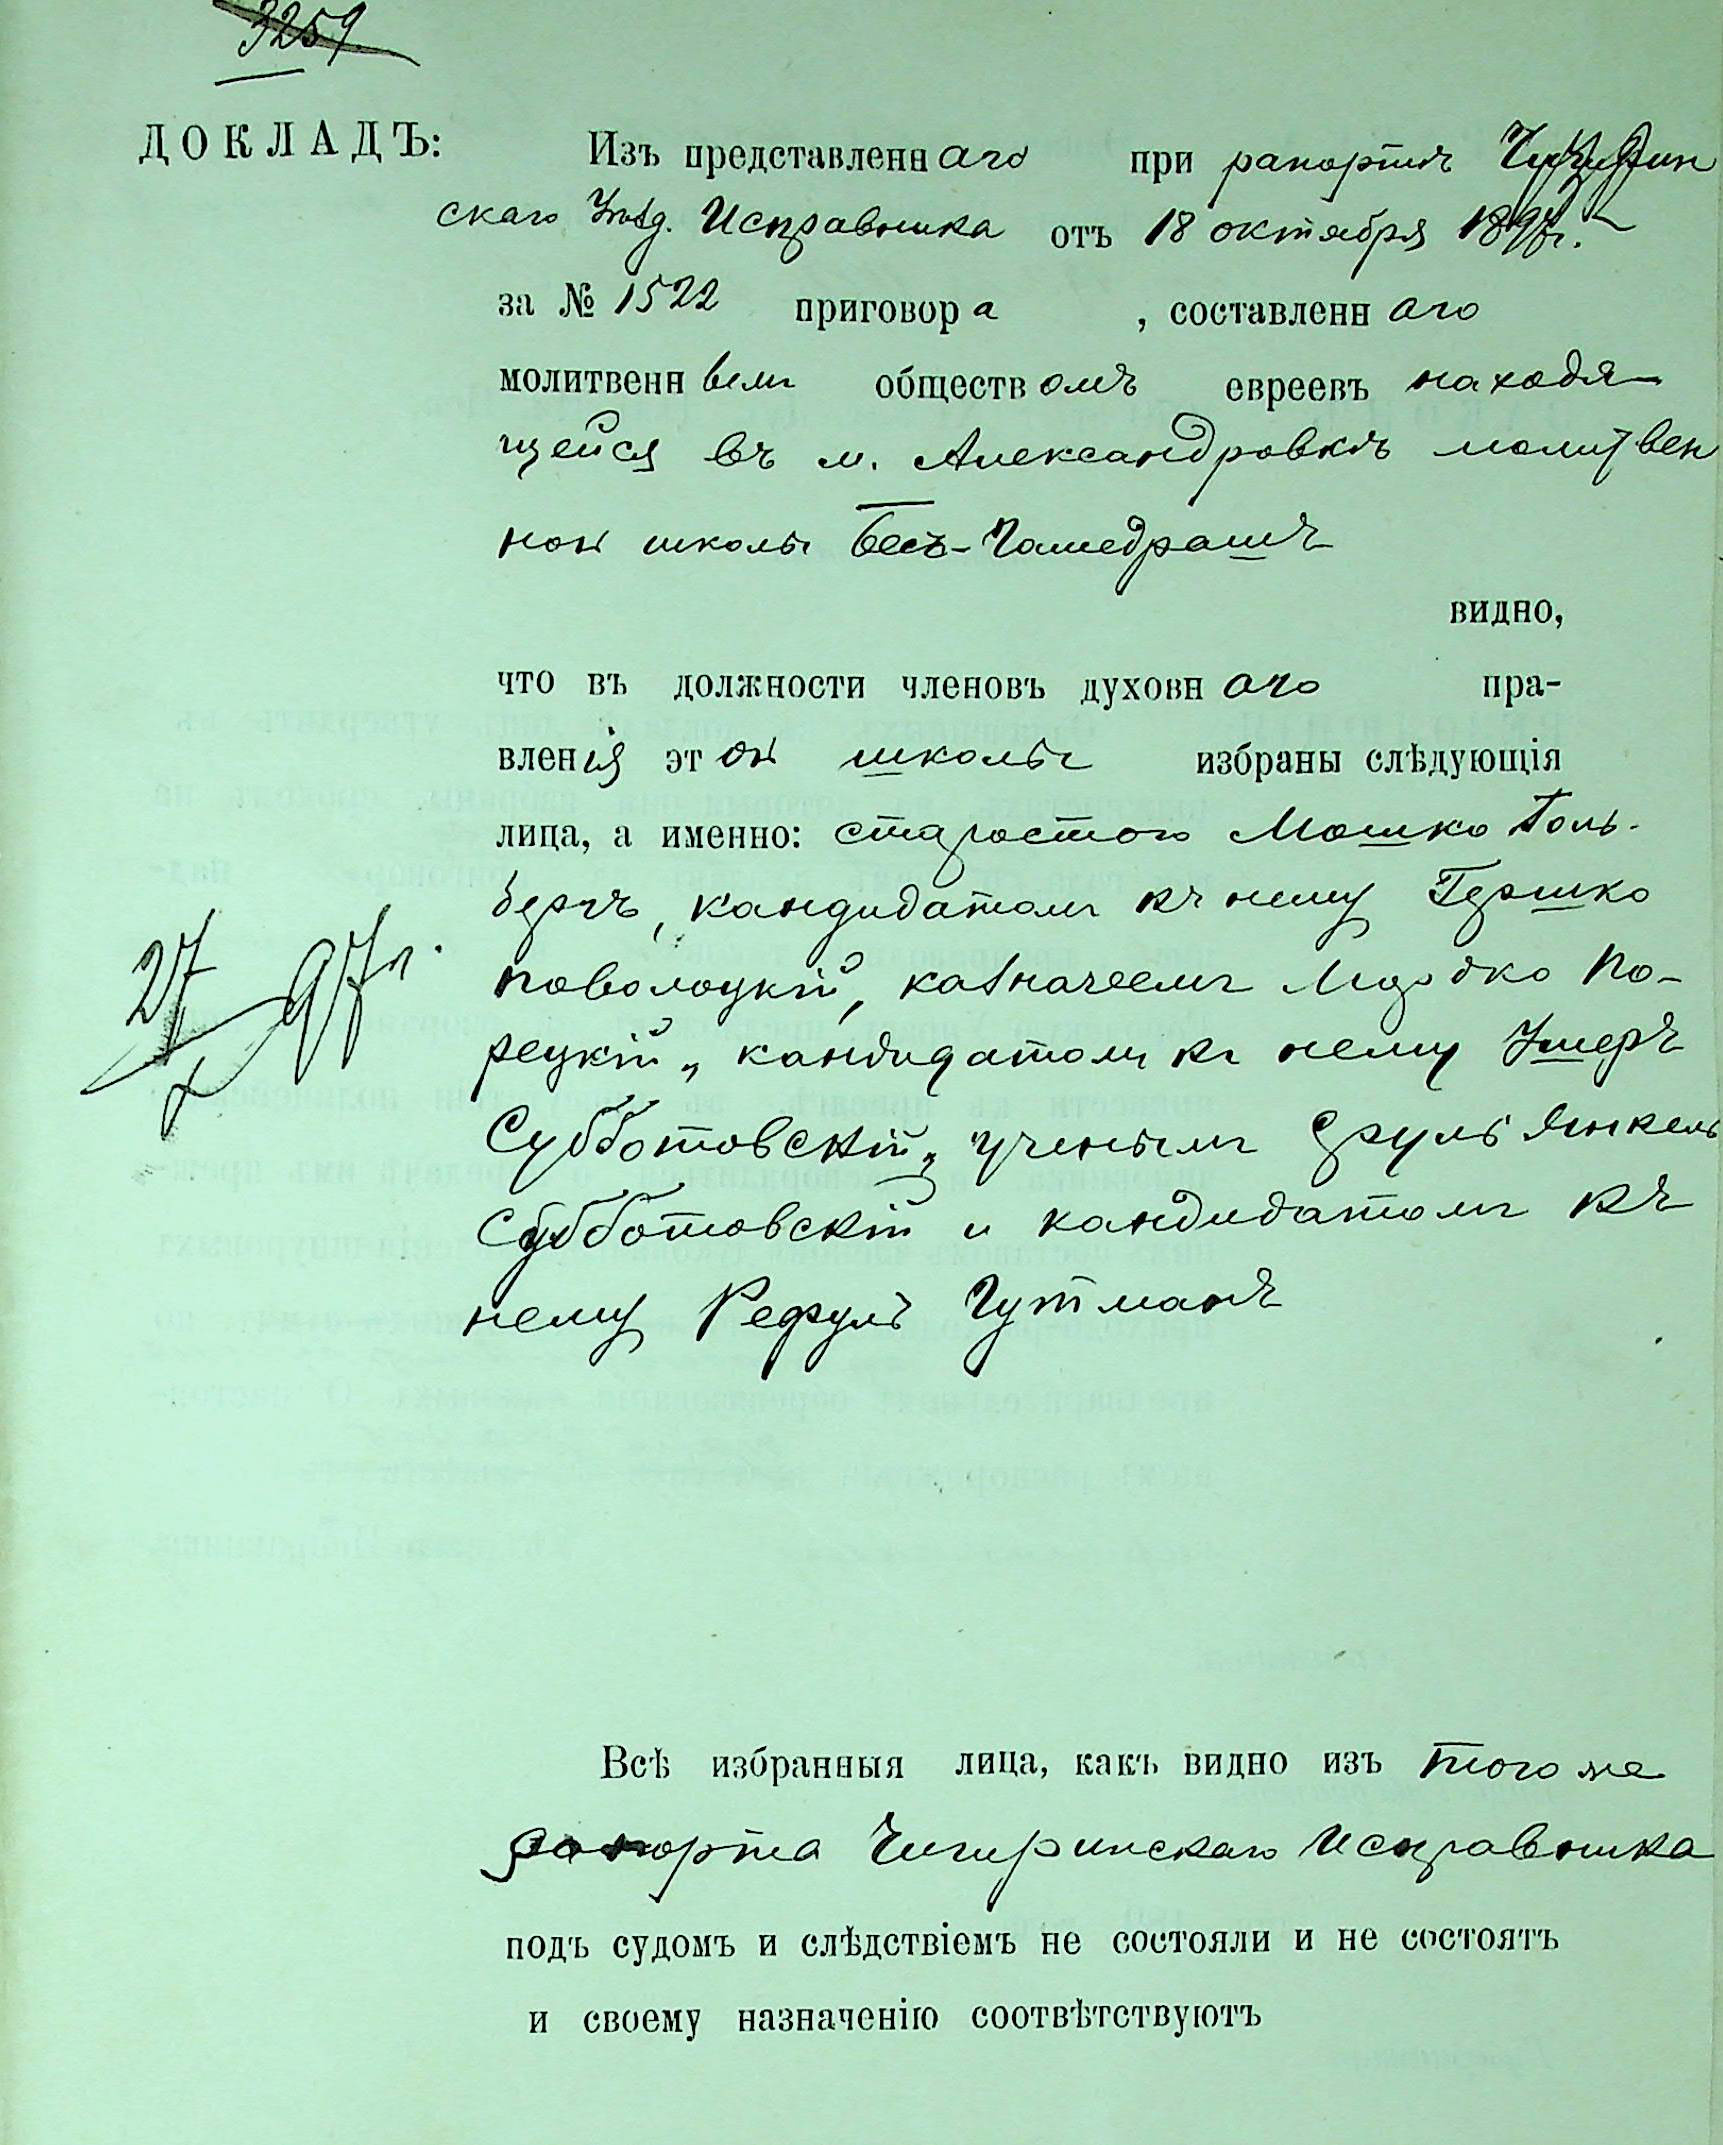 3259
ДОКЛАДЪ:
Изъ представленнаго при рапортѣ Чигирин
скаго Уѣзд. Исправника отъ 18 октября 1897г.
за № 1522 приговора, составленнаго
молитвеннымъ обществомъ евреевъ находя-
щейся въ м. Александровкѣ молитвен
ной школы Бесъ-Гамедрашъ
видно,
что въ должности членовъ духовнаго пра-
вленія этой школы избраны слѣдующія
лица, а именно: старостою Мошко Голь-
бергъ, кандидатомъ къ нему Гершко
Поволоцкій, казначеемъ Мордко По-
рецкій, кандидатомъ къ нему Ушеръ
Субботовскій, ученымъ Сруль Янкель
Субботовскій и кандидатомъ къ
нему Рефулъ Гутманъ
27/X 97г.
Всѣ избранныя лица, какъ видно изъ того же
рапорта Чигиринскаго Исправника
подъ судомъ и слѣдствіемъ не состояли и не состоятъ
и своему назначенію соотвѣтствуютъ